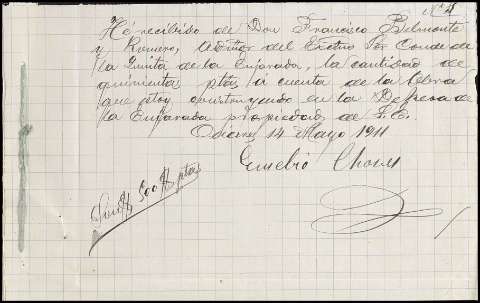 Nº 4
He recibido de Don Francisco Belmonte
y Romero, Admor del Excmo Sor Conde de
la Quinta de la Enjarada, la cantidad de
quinientas ptas á cuenta de la obra
que estoy construyendo en la Dehesa de
la Enjarada propiedad de S.E.
Cáceres 14 Mayo 1911
Eusebio
Son # 500 # ptas